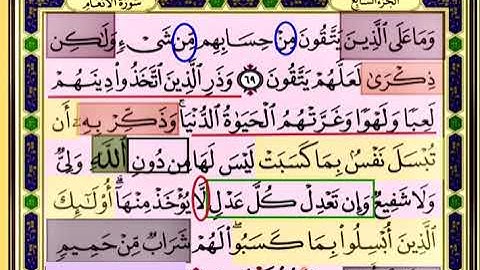 سورة الأنعام
الجزء السابع
وَمَا عَلَى ٱلَّذِينَ يَتَّقُونَ مِنْ حِسَابِهِم مِّن شَىْءٍ وَلَٰكِن
ذِكْرَىٰ لَعَلَّهُمْ يَتَّقُونَ ٦٩ وَذَرِ ٱلَّذِينَ ٱتَّخَذُوا۟ دِينَهُمْ
لَعِبًا وَلَهْوًا وَغَرَّتْهُمُ ٱلْحَيَوٰةُ ٱلدُّنْيَا ۚ وَذَكِّرْ بِهِۦٓ أَن
تُبْسَلَ نَفْسٌۢ بِمَا كَسَبَتْ لَيْسَ لَهَا مِن دُونِ ٱللَّهِ وَلِىٌّ
وَلَا شَفِيعٌ وَإِن تَعْدِلْ كُلَّ عَدْلٍ لَّا يُؤْخَذْ مِنْهَآ ۗ أُو۟لَٰٓئِكَ
ٱلَّذِينَ أُبْسِلُوا۟ بِمَا كَسَبُوا۟ ۖ لَهُمْ شَرَابٌ مِّنْ حَمِيمٍ